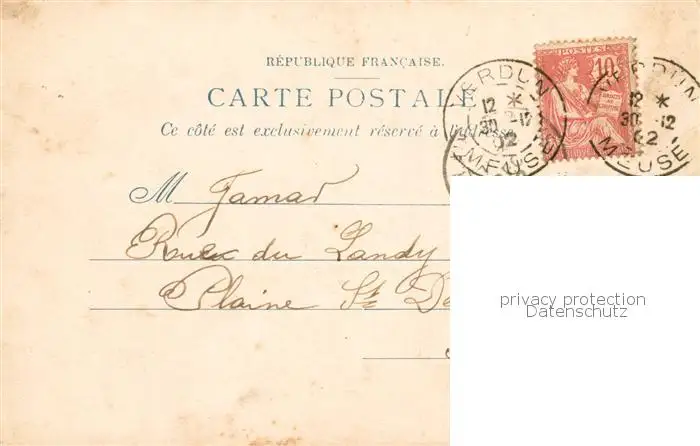 RÉPUBLIQUE FRANÇAISE.
CARTE POSTALE
Ce côté est exclusivement réservé à l'adresse
POSTES
10
VERDUN
12 *
30 -12
02
MEUSE
VERDUN
12 *
30 -12
02
MEUSE
M Jamar
du Landy
Plaine St
privacy protection
Datenschutz